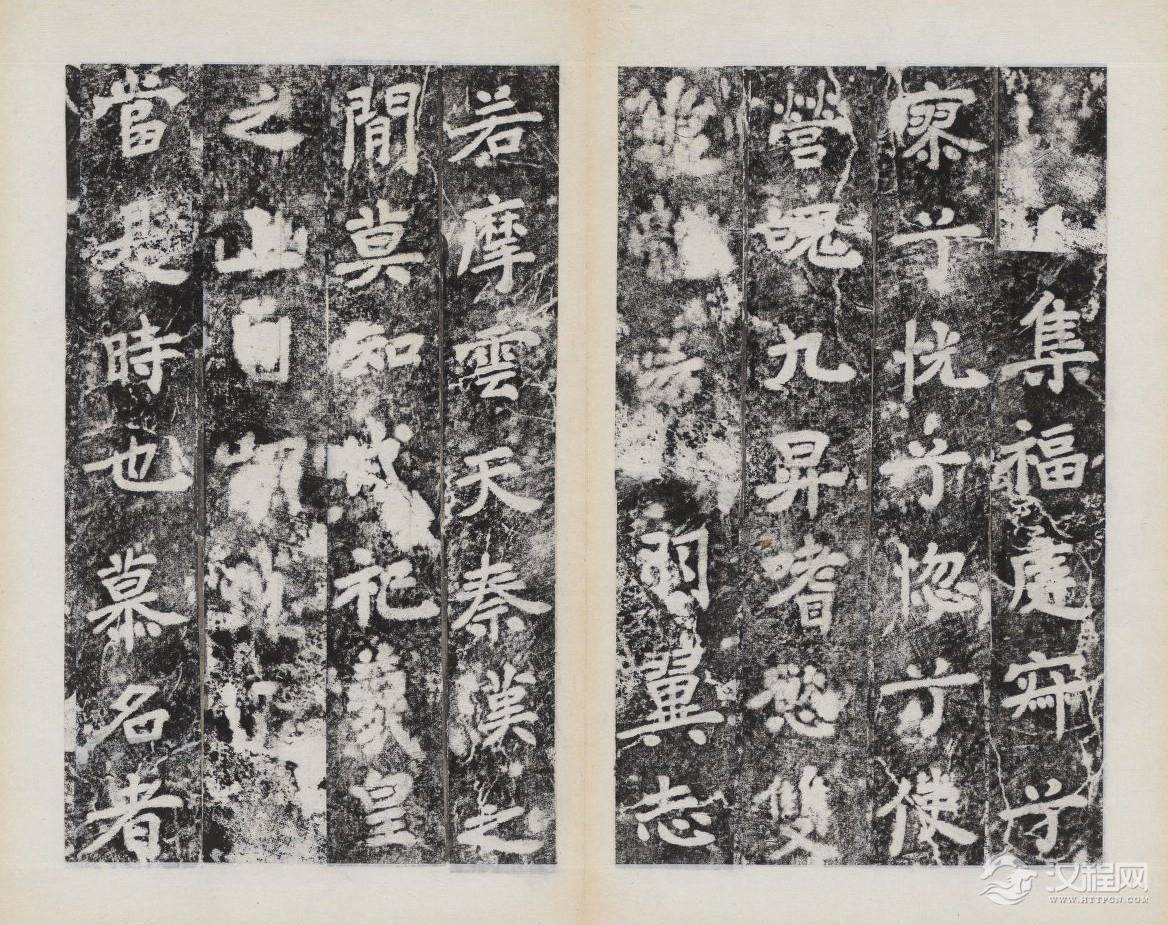 集福處寂兮
寥兮恍兮惚兮使
營魄九昇嗜慾雙
羽翼志
若摩雲天秦漢之
間莫知祀羲皇
之自
當是時也慕名者
汉程网
WWW.HTTPCN.COM